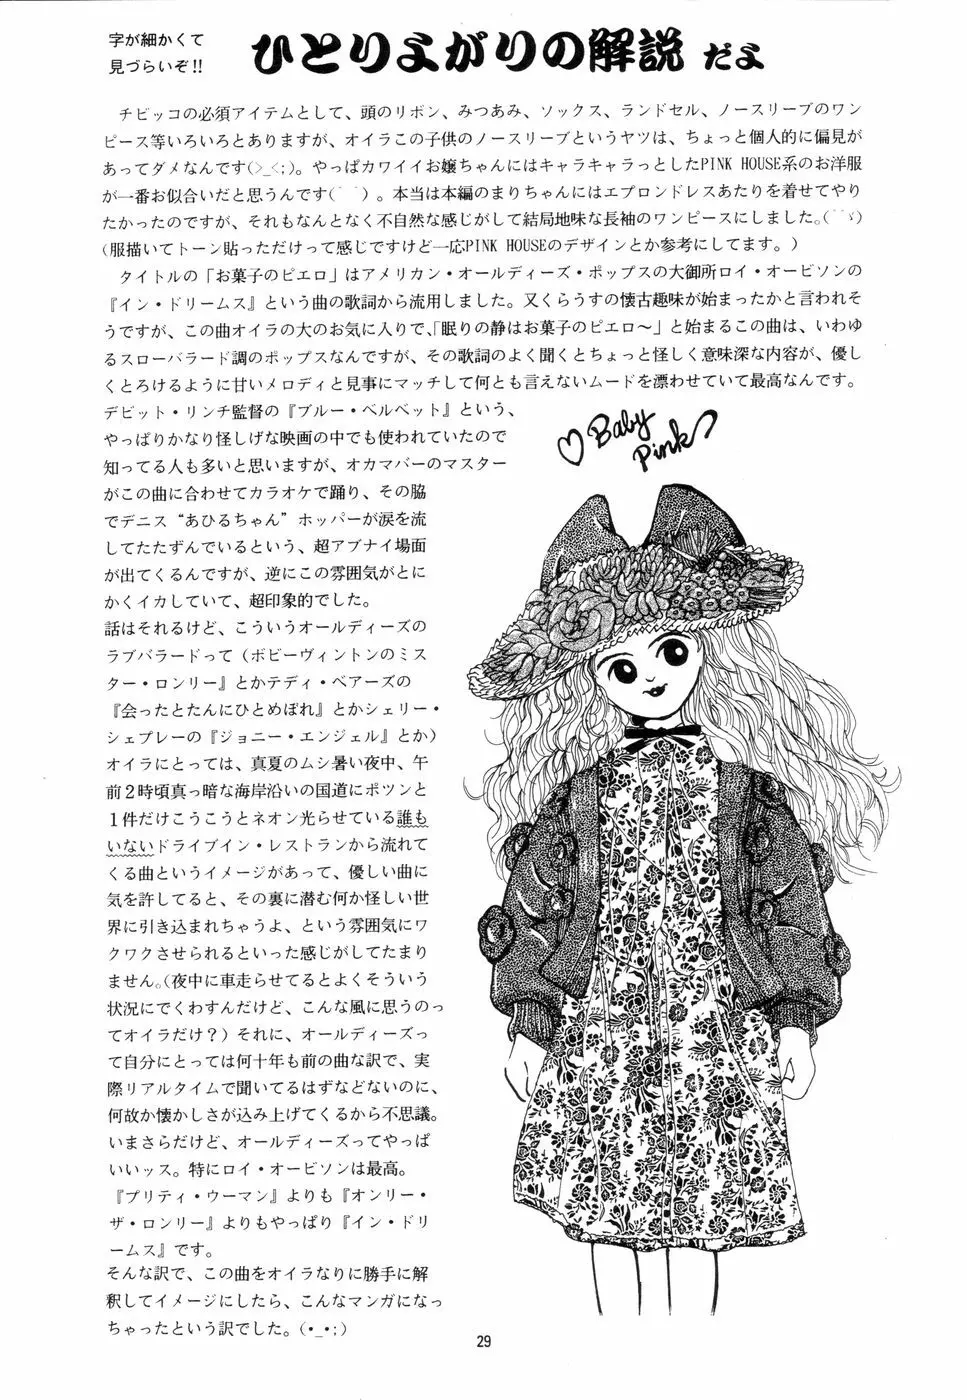 字が細かくて
見づらいぞ!!
ひとりよがりの解説 だよ
チビッコの必須アイテムとして、頭のリボン、みつあみ、ソックス、ランドセル、ノースリーブのワン
ピース等いろいろとありますが、オイラこの子供のノースリーブというヤツは、ちょっと個人的に偏見が
あってダメなんです(>_<;)。やっぱカワイイお嬢ちゃんにはキャラキャラっとしたPINK HOUSE系のお洋服
が一番お似合いだと思うんです(¯ ¯)。本当は本編のまりちゃんにはエプロンドレスあたりを着せてやり
たかったのですが、それもなんとなく不自然な感じがして結局地味な長袖のワンピースにしました。(¯¯ゞ)
(服描いてトーン貼っただけって感じですけど一応PINK HOUSEのデザインとか参考にしてます。)
タイトルの「お菓子のピエロ」はアメリカン・オールディーズ・ポップスの大御所ロイ・オービソンの
『イン・ドリームス』という曲の歌詞から流用しました。又くらうすの懐古趣味が始まったかと言われそ
うですが、この曲オイラの大のお気に入りで、「眠りの静はお菓子のピエロ～」と始まるこの曲は、いわゆ
るスローバラード調のポップスなんですが、その歌詞のよく聞くとちょっと怪しく意味深な内容が、優し
くとろけるように甘いメロディと見事にマッチして何とも言えないムードを漂わせていて最高なんです。
デビット・リンチ監督の『ブルー・ベルベット』という、
やっぱりかなり怪しげな映画の中でも使われていたので
知ってる人も多いと思いますが、オカマバーのマスター
がこの曲に合わせてカラオケで踊り、その脇
でデニス“あひるちゃん”ホッパーが涙を流
してたたずんでいるという、超アブナイ場面
が出てくるんですが、逆にこの雰囲気がとに
かくイカしていて、超印象的でした。
話はそれるけど、こういうオールディーズの
ラブバラードって(ボビーヴィントンのミス
ター・ロンリー』とかテディ・ベアーズの
『会ったとたんにひとめぼれ』とかシェリー・
シェブレーの『ジョニー・エンジェル』とか)
オイラにとっては、真夏のムシ暑い夜中、午
前2時頃真っ暗な海岸沿いの国道にポツンと
1件だけこうこうとネオン光らせている誰も
いないドライブイン・レストランから流れて
くる曲というイメージがあって、優しい曲に
気を許してると、その裏に潜む何か怪しい世
界に引き込まれちゃうよ、という雰囲気にワ
クワクさせられるといった感じがしてたまり
ません。(夜中に車走らせてるとよくそういう
状況にでくわすんだけど、こんな風に思うのっ
てオイラだけ?)それに、オールディーズっ
て自分にとっては何十年も前の曲な訳で、実
際リアルタイムで聞いてるはずなどないのに、
何故か懐かしさが込み上げてくるから不思議。
いまさらだけど、オールディーズってやっぱ
いいッス。特にロイ・オービソンは最高。
『プリティ・ウーマン』よりも『オンリー・
ザ・ロンリー』よりもやっぱり『イン・ドリ
ームス』です。
そんな訳で、この曲をオイラなりに勝手に解
釈してイメージにしたら、こんなマンガになっ
ちゃったという訳でした。(・_・;)
♡Baby
Pink
29